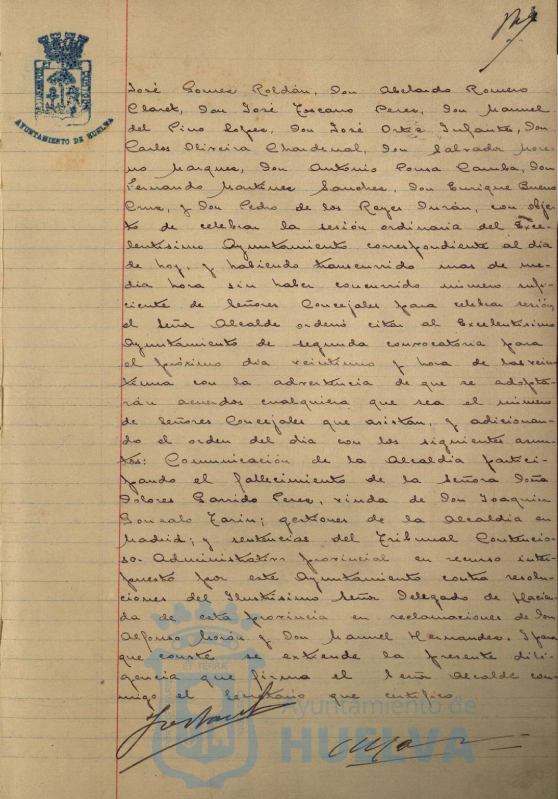 AYUNTAMIENTO DE HUELVA
José Gomez Roldán, don Abelardo Romero
Claret, don José Toscano Perez, don Manuel
del Pino Lopez, don José Ortiz Infantes, don
Carlos Oliveira Chardenal, don Salvador More-
no Marquez, don Antonio Pousa Camba, don
Fernando Martinez Sanchez, don Enrique Bueno
Cruz, y don Pedro de los Reyes Durán, con obje-
to de celebrar la sesión ordinaria del Exce-
lentisimo Ayuntamiento correspondiente al dia
de hoy, y habiendo transcurrido mas de me-
dia hora sin haber concurrido número sufi-
ciente de Señores Concejales para celebrar sesión,
el Señor Alcalde ordenó citar al Excelentisimo
Ayuntamiento de segunda convocatoria para
el próximo dia veintiuno y hora de las vein-
tiuna con la advertencia de que se adopta-
rán acuerdos cualquiera que sea el número
de Señores Concejales que asistan, y adicionan-
do el orden del dia con los siguientes asun-
tos: Comunicación de la Alcaldia partici-
pando el fallecimiento de la Señora Doña
Dolores Garrido Perez, viuda de Don Joaquin
Gonzalo Tarin; gestiones de la Alcaldia en
Madrid; y sentencias del Tribunal Contencio-
so-Administrativo provincial en recurso inter-
puesto por este Ayuntamiento contra resolu-
ciones del Ilustrisimo Señor Delegado de Hacien-
da de esta provincia en reclamaciones de Don
Alfonso Morón y Don Manuel Hernandez. Y para
que conste se extiende la presente dili-
gencia que firma el Señor Alcalde con-
migo el Secretario que certifico.
Ayuntamiento de
HUELVA